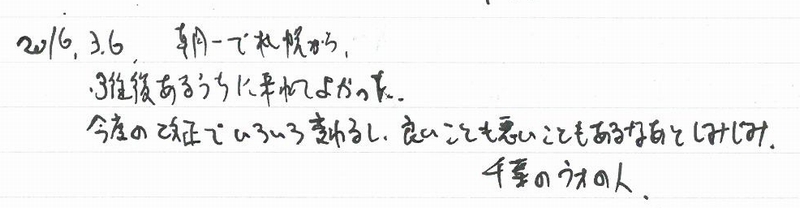 2016, 3.6, 朝一で札幌から、
3往復あるうちに来れてよかった。
今度の改正でいろいろ変わるし、良いことも悪いこともあるなあとしみじみ。
千葉の の人.